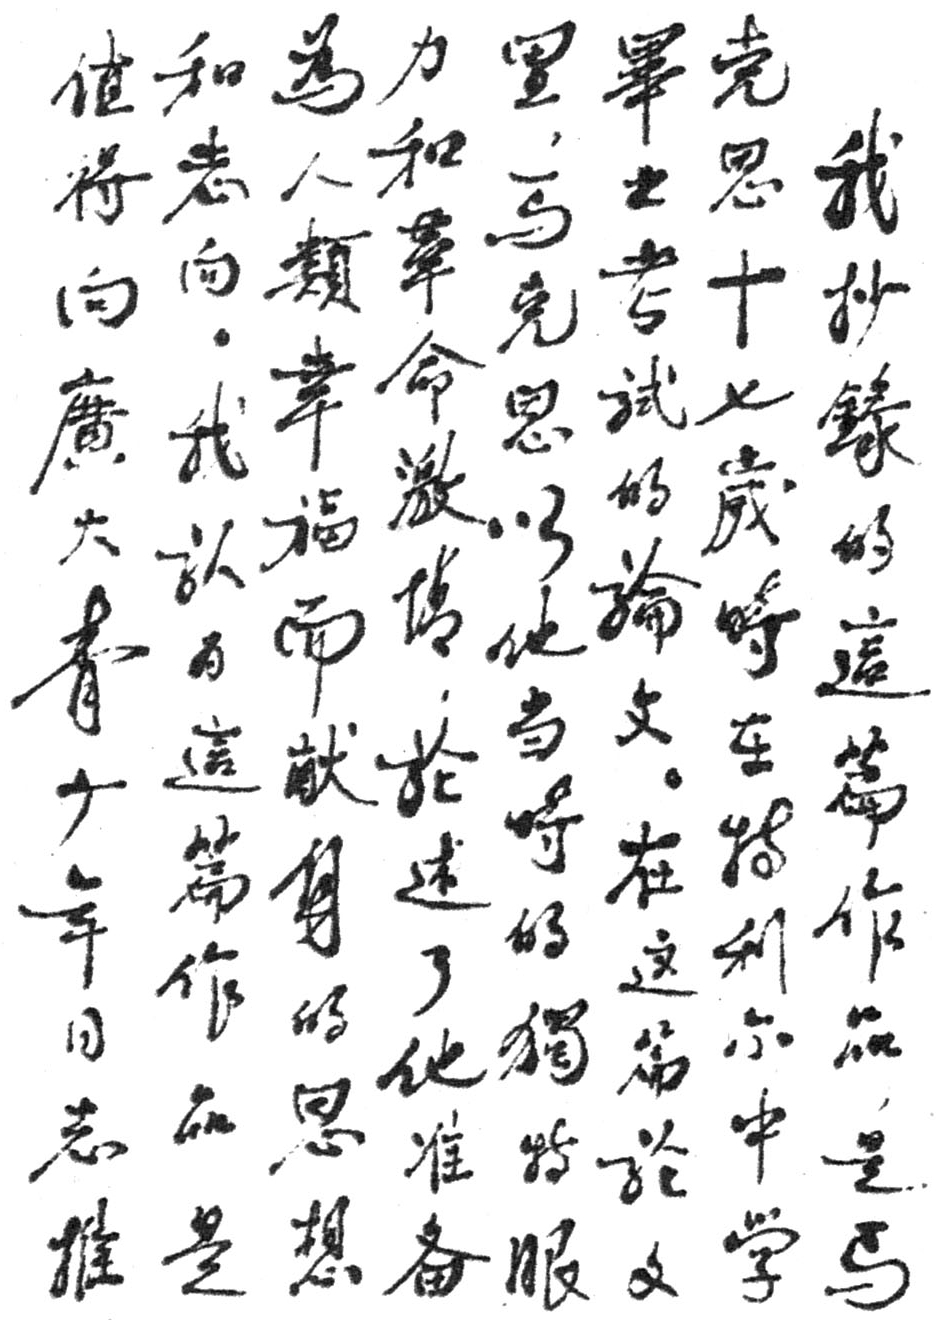 我抄錄的這篇作品，是马
克思十七歲時在特利尔中学
畢业考试的論文。在这篇论文
里，马克思以他当時的獨特眼
力和革命激情，论述了他准备
為人類幸福而献身的思想
和志向。我认为這篇作品是
值得向廣大青少年同志推